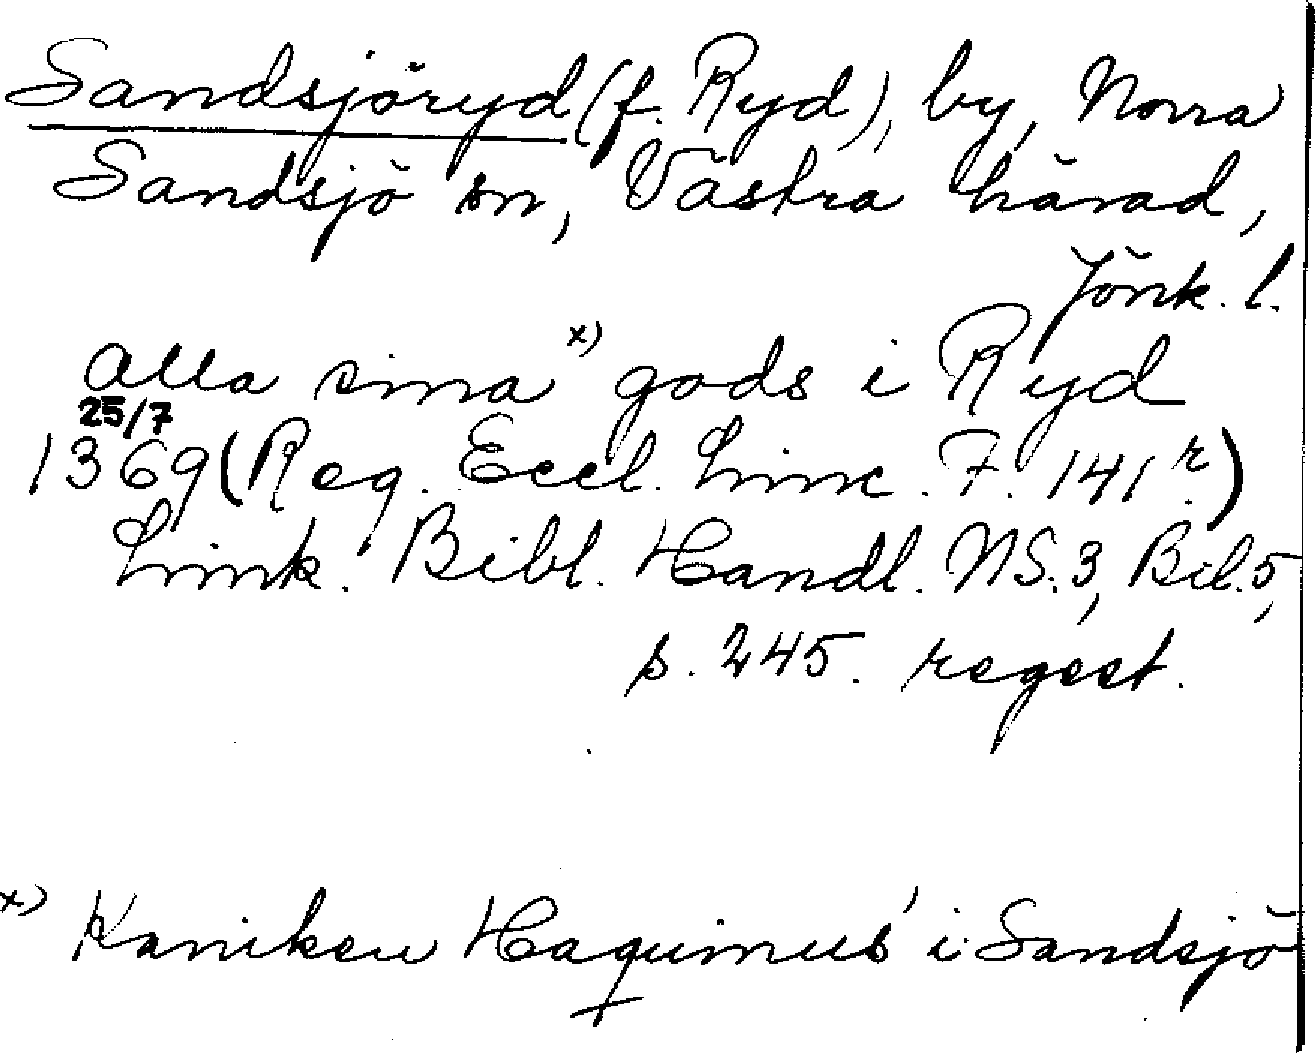 Sandsjöryd (f. Ryd), by, Norra
Sandsjö sn, Västra härad,
Jönk. l.
Alla sina x) gods i Ryd
25/7
1369 (Reg. Eccl. Linc. F. 141 r.)
Link. Bibl. Handl. NS. 3, Bil. 5,
s. 245. regest.
x) Kaniken Haquinus' i Sandsjö